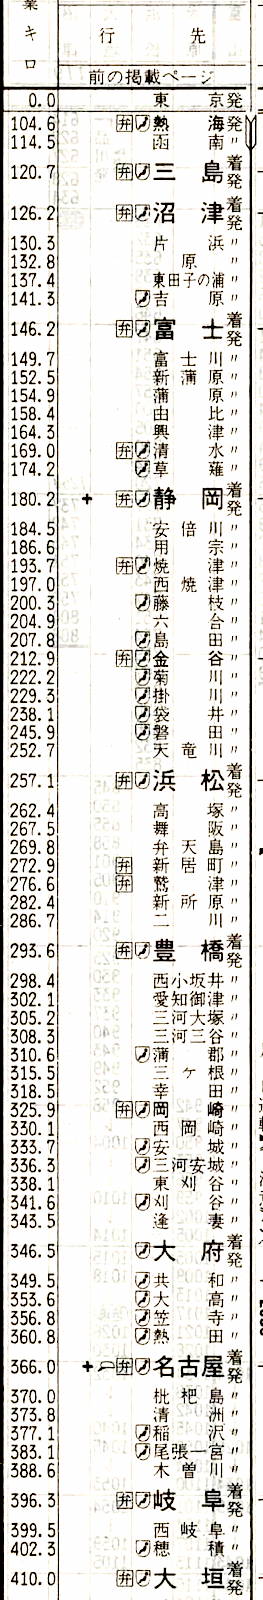 業キロ 行先
前の掲載ページ
0.0 東京発
104.6 弁 熱海発
114.5 函南〃
120.7 弁 三島着発
126.2 弁 沼津着発
130.3 片浜〃
132.8 原〃
137.4 東田子の浦〃
141.3 吉原〃
146.2 弁 富士着発
149.7 富士川〃
152.5 新蒲原〃
154.9 蒲原〃
158.4 由比〃
164.3 興津〃
169.0 弁 清水〃
174.2 草薙〃
180.2 + 弁 静岡着発
184.5 安倍川〃
186.6 用宗〃
193.7 弁 焼津〃
197.0 西焼津〃
200.3 藤枝〃
204.9 六合〃
207.8 島田〃
212.9 弁 金谷〃
222.2 菊川〃
229.3 掛川〃
238.1 袋井〃
245.9 磐田〃
252.7 天竜川〃
257.1 弁 浜松着発
262.4 高塚〃
267.5 舞阪〃
269.8 弁天島〃
272.9 弁 新居町〃
276.6 弁 鷲津〃
282.4 新所原〃
286.7 二川〃
293.6 弁 豊橋着発
298.4 西小坂井〃
302.1 愛知御津〃
305.2 三河大塚〃
308.3 三河三谷〃
310.6 蒲郡〃
315.5 三ヶ根〃
318.5 幸田〃
325.9 弁 岡崎〃
330.1 西岡崎〃
333.7 安城〃
336.3 三河安城〃
338.1 東刈谷〃
341.6 刈谷〃
343.5 逢妻〃
346.5 大府着発
349.5 共和〃
353.6 大高〃
356.8 笠寺〃
360.8 熱田〃
366.0 + 弁 名古屋着発
370.0 枇杷島〃
373.8 清洲〃
377.1 稲沢〃
383.1 尾張一宮〃
388.6 木曽川〃
396.3 弁 岐阜着発
399.5 西岐阜〃
402.3 穂積〃
410.0 弁 大垣着発